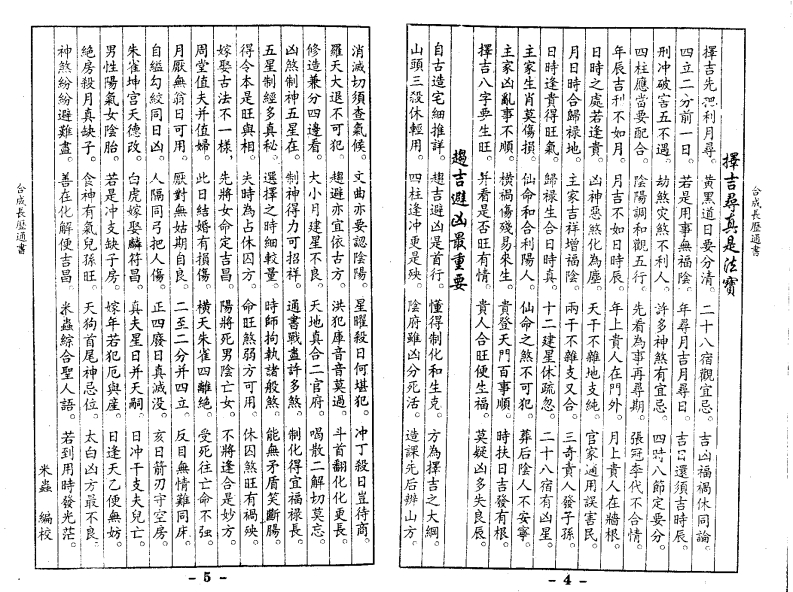 合成長歷通書
擇吉尋真是法寶
擇吉先把利月尋。黃黑道日要分清。二十八宿觀宜忌。吉凶福禍休同論。
四立二分前一日。若是用事無福陰。年尋月吉月尋日。吉日還須吉時辰。
刑沖破害五不遇。劫煞災煞不利人。許多神煞有宜忌。四時八節定要分。
四柱應當要配合。陰陽調和觀五行。先看為事再尋期。張冠李代不合情。
年辰吉利不如月。月吉不如日時辰。年上貴人在門外。月上貴人在牆根。
日時之處若逢貴。凶神惡煞化為塵。天干不雜地支純。官家通用誤害民。
月日時合歸祿地。主家吉祥增福陰。兩干不雜支又合。三奇貴人發子孫。
日時逢貴得旺氣。歸祿生合日時真。十二建星休疏忽。二十八宿有凶星。
主家生肖莫傷損。仙命和合利陽人。仙命之煞不可犯。葬后陰人不安寧。
主家凶亂事不順。橫禍傷殘易來生。貴登天門百事順。時扶日吉發有根。
擇吉八字要生旺。并看是否旺有情。貴人合旺便生福。莫疑凶多失良辰。
趨吉避凶最重要
自古造宅細推詳。趨吉避凶是首行。懂得制化和生克。方為擇吉之大綱。
山頭三殺休輕用。四柱逢沖更是殃。陰府雖凶分死活。造課先后辨山方。
- 4 -
消滅切須查氣候。文曲亦要認陰陽。星曜殺日何堪犯。冲丁殺日豈待商。
羅天大退不可犯。趨避亦宜依古方。洪犯庫音音莫過。斗首翻化化更長。
修造兼分四邊看。大小月建星不良。天地真合二官府。喝散二解切莫忘。
凶煞制神五星在。制神得力可招祥。通書戰盡許多煞。制化得宜福祿長。
五星制經多真秘。選擇之時細較量。時師拘執諸般煞。能無矛盾笑斷腸。
得令本是旺與相。失時為占休囚方。命旺煞弱方可用。休囚煞旺有禍殃。
嫁娶古法不一樣，先將女命定吉昌。陽將死男陰亡女。不將逢合是妙方。
周堂值夫并值婦。此日結婚有損傷。橫天朱雀四離絕。受死往亡命不強。
月厭無翁日可用。厭對無姑期自良。二至二分并四立。反目無情難同床。
自縊勾絞同日凶。人隔同弓把人傷。正四廢日真滅没。亥日箭刃守空房。
朱雀坤宮天德改。白虎嫁娶麟符昌。真夫星日并天嗣。日冲干支夫兒亡。
男性陽氣女陰胎。若是冲支缺子房。嫁年若犯厄與產。日逢天乙便無妨。
絕房殺月真缺子。食神有氣兒孫旺。天狗首尾神忌位。太白凶方最不良。
神煞紛紛避難盡。善在化解便吉昌。米蟲綜合聖人語。若到用時發光茫。
米蟲 編校
合成長歷通書
- 5 -